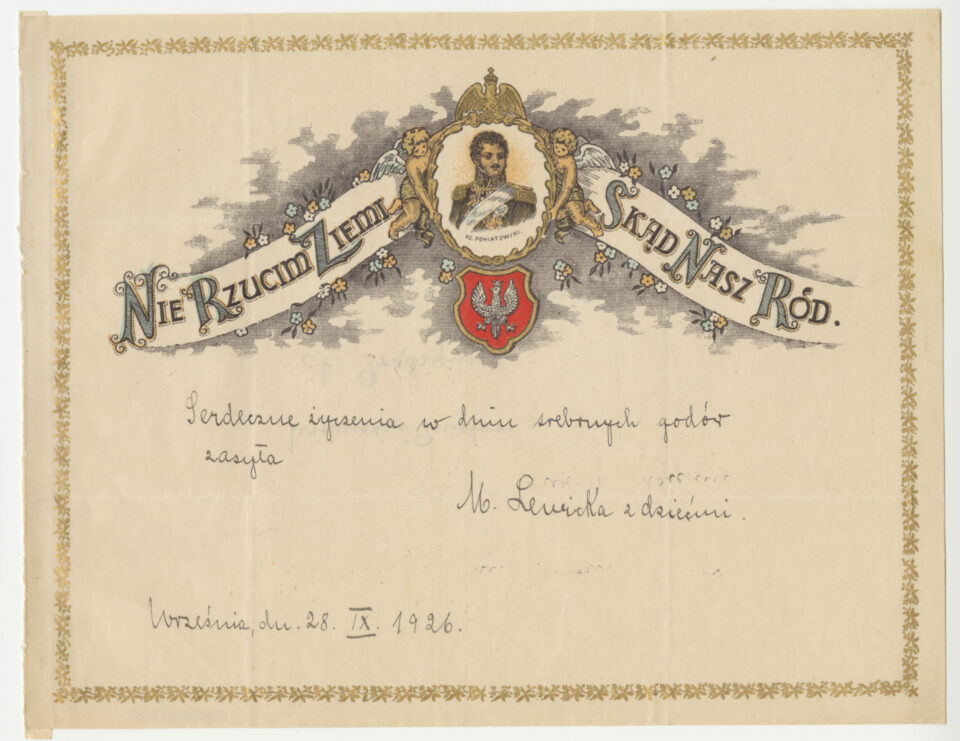 Nie Rzucim Ziemi Skąd Nasz Ród.
KS. PONIATOWSKI.
Serdeczne życzenia w dniu srebrnych godów
zasyła
M. Lewicka z dziećmi.
Września, dn. 28. IX. 1926.